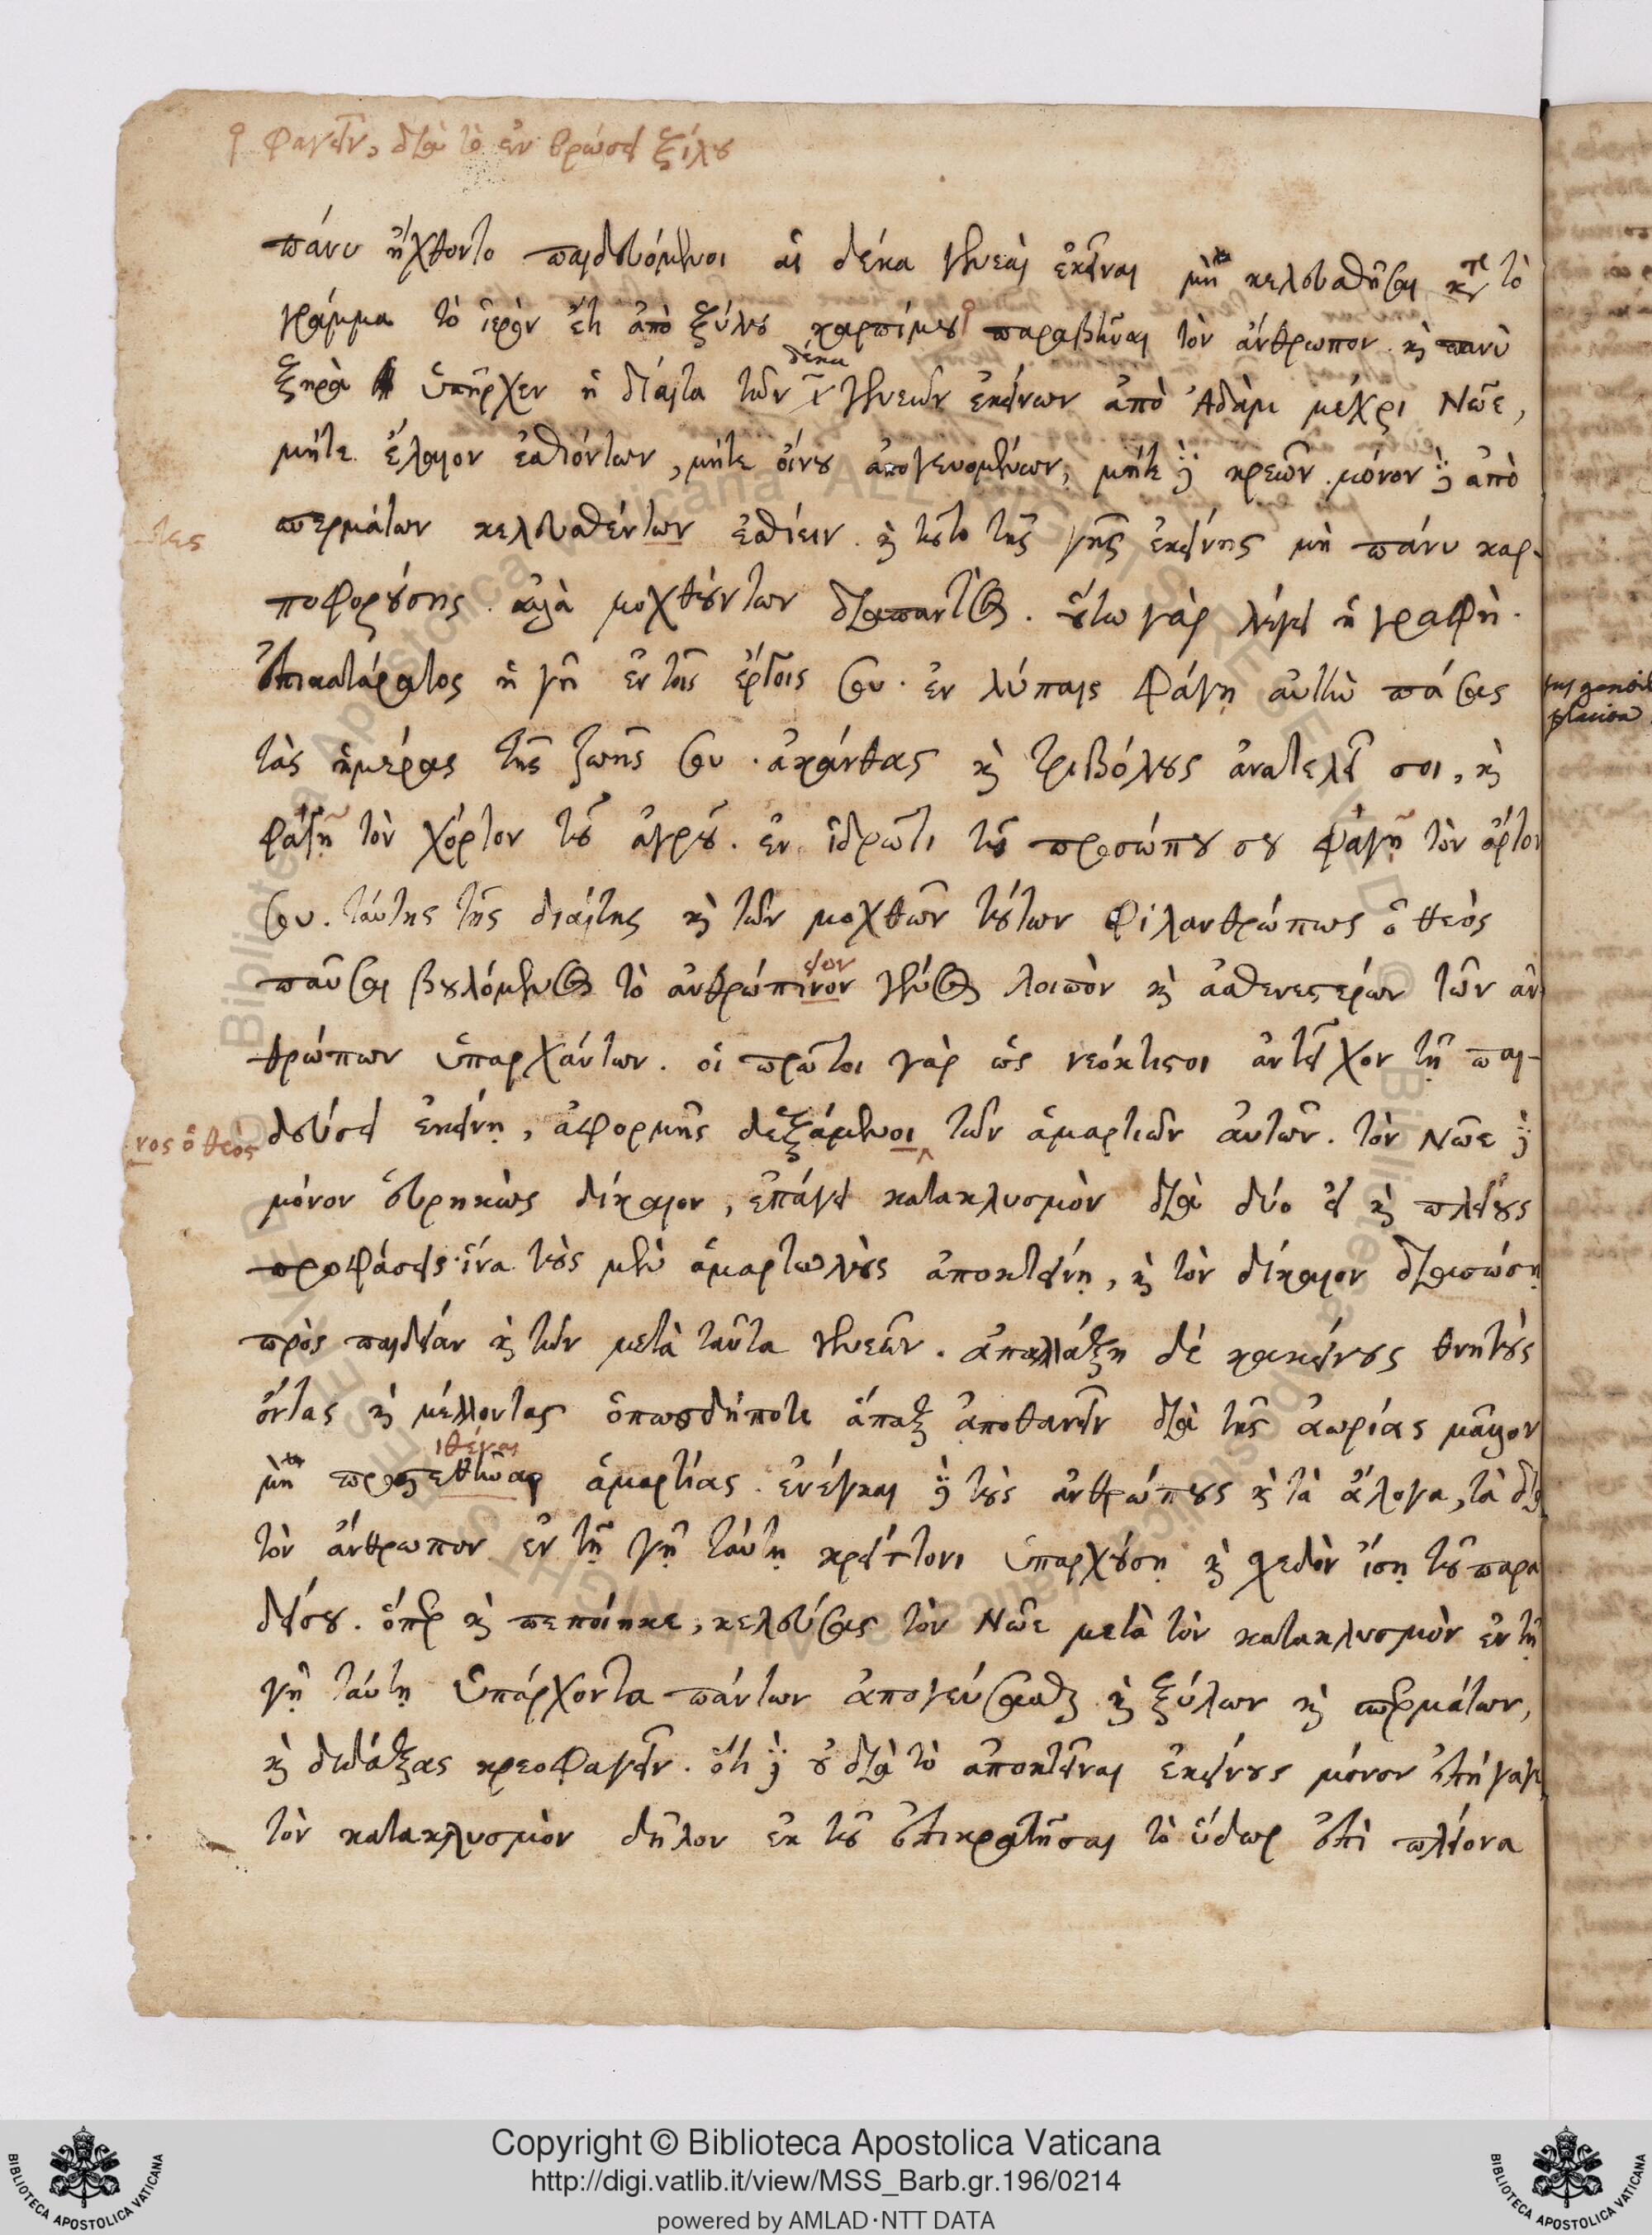 φαγεῖν, διὰ τὸ ἐν βρώσει ξύλου
πάνυ ἤχθοντο παιδευόμενοι αἱ δέκα γενεαὶ ἐκεῖναι μὴ κελευσθεῖσαι κατὰ τὸ
γράμμα τὸ ἱερὸν ἔτι ἀπὸ ξύλου καρπίμου παραβῆναι τὸν ἄνθρωπον. καὶ πανὺ
ξηρὰ ὑπῆρχεν ἡ δίαιτα τῶν ι δέκα γενεῶν ἐκείνων ἀπὸ Ἀδὰμ μέχρι Νῶε,
μήτε ἔλαιον ἐσθιόντων, μήτε οἴνου ἀπογευομένων, μήτε δὲ κρεῶν. μόνον δὲ ἀπὸ
σπερμάτων κελευσθέντων ἐσθίειν. καὶ τοῦτο τῆς γῆς ἐκείνης μὴ πάνυ καρ-
τες
ποφορούσης. ἀλλὰ μοχθούντων διαπαντός. οὕτω γὰρ λέγει ἡ γραφὴ.
ἐπικατάρατος ἡ γῆ ἐν τοῖς ἔργοις σου. ἐν λύπαις φάγῃ αὐτὴν πάσας
τὰς ἡμέρας τῆς ζωῆς σου. ἀκάνθας καὶ τριβόλους ἀνατελεῖ σοι, καὶ
φάγῃ τὸν χόρτον τοῦ ἀγροῦ. ἐν ἱδρῶτι τοῦ προσώπου σου φάγῃ τὸν ἄρτον
σου. ταύτης τῆς διαίτης καὶ τῶν μοχθῶν τούτων φιλανθρώπως ὁ θεὸς
παῦσαι βουλόμενος τὸ ἀνθρώπινον ειον γένος λοιπὸν καὶ ἀσθενεστέρων τῶν ἀν
θρώπων ὑπαρχόντων. οἱ πρῶτοι γὰρ ὡς νεόκτιστοι ἀντεῖχον τῇ παι-
δεύσει ἐκείνῃ, ἀφορμῆς δεξάμενοι τῶν ἁμαρτιῶν αὐτῶν. τὸν Νῶε δὲ
νος ὁ θεὸς
μόνον εὑρηκὼς δίκαιον, ἐπάγει κατακλυσμὸν διὰ δύο εἰ καὶ πλείους
προφάσεις· ἵνα τοὺς μὲν ἁμαρτωλοὺς ἀποκτείνῃ, καὶ τὸν δίκαιον διασώσῃ
πρὸς παιδείαν καὶ τῶν μετὰ ταῦτα γενεῶν. ἀπαλλάξῃ δὲ κακείνους θνητοὺς
ὄντας καὶ μέλλοντας ὁπωσδήποτε ἅπαξ ἀποθανεῖν διὰ τῆς ἀωρίας μᾶλλον
μὴ ἁμαρτίας. ἐνέγκαι δὲ τοὺς ἀνθρώπους καὶ τὰ ἄλογα, τὰ διὰ
τὸν ἄνθρωπον ἐν τῇ γῇ ταύτῃ κρείττονι ὑπαρχούσῃ καὶ σχεδὸν ἴσῃ τοῦ παρα
δείσου. ὅπερ καὶ πεποίηκε, κελεύσας τὸν Νῶε μετὰ τὸν κατακλυσμὸν ἐν τῇ
γῇ ταύτῃ ὑπάρχοντα πάντων ἀπογεύσασθαι καὶ ξύλων καὶ σπερμάτων,
καὶ διδάξας κρεοφαγεῖν. ὅτι δὲ οὐ διὰ τὸ ἀποκτεῖναι ἐκείνους μόνον ἐπήγαγε
τὸν κατακλυσμὸν δῆλον ἐκ τοῦ ἐπικρατῆσαι τὸ ὕδωρ ἐπὶ πλείονα
© Biblioteca Apostolica Vaticana ALL RIGHTS RESERVED
Copyright © Biblioteca Apostolica Vaticana
http://digi.vatlib.it/view/MSS_Barb.gr.196/0214
powered by AMLAD·NTT DATA
BIBLIOTECA APOSTOLICA VATICANA
BIBLIOTECA APOSTOLICA VATICANA